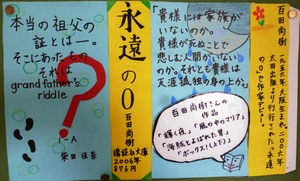 本当の祖父の
証とは―。
そこにあったもの
それは
grandfather's
riddle
1-A
栗田佳吾
永遠の0
百田尚樹
講談社文庫
2006年
876円
「貴様には家族が
いないのか。
貴様が死ぬことで
悲しむ人間がいない
のか。それとも貴様は
天涯孤独の身の上か。」
百田尚樹さんの
作品
「輝く夜」「風の中のマリア」
「海賊とよばれた男」
「ボックス!(上下)」
百田尚樹
一九五六年大阪生まれ。二〇〇六年
太田出版より刊行された「永遠
の0」で作家デビュー。